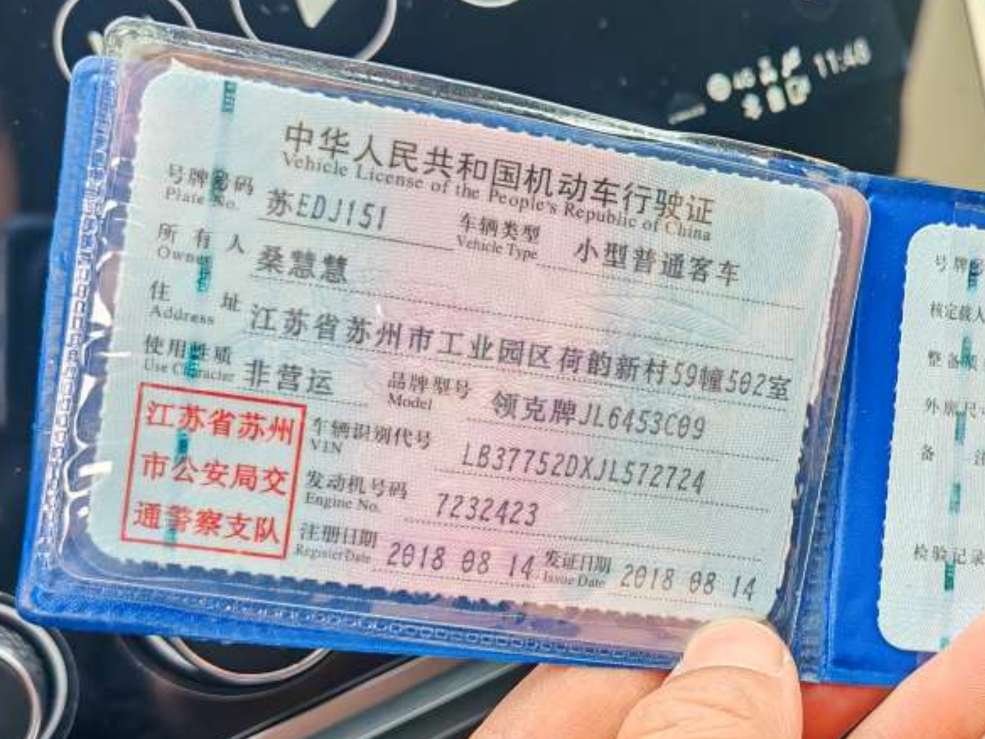 11:48
4G
中华人民共和国机动车行驶证
Vehicle License of the People's Republic of China
号牌号码 苏EDJ151 车辆类型 小型普通客车
Plate No. Vehicle Type
所有人 桑慧慧
Owner
住址 江苏省苏州市工业园区荷韵新村59幢502室
Address
使用性质 非营运 品牌型号 领克牌JL6453C09
Use Character Model
江苏省苏州
市公安局交
通警察支队
车辆识别代号 LB37752DXJL572724
VIN
发动机号码 7232423
Engine No.
注册日期 2018 08 14 发证日期 2018 08 14
Register Date Issue Date
号牌号
核定载人
整备质
外廓尺寸
备 注
检验记录